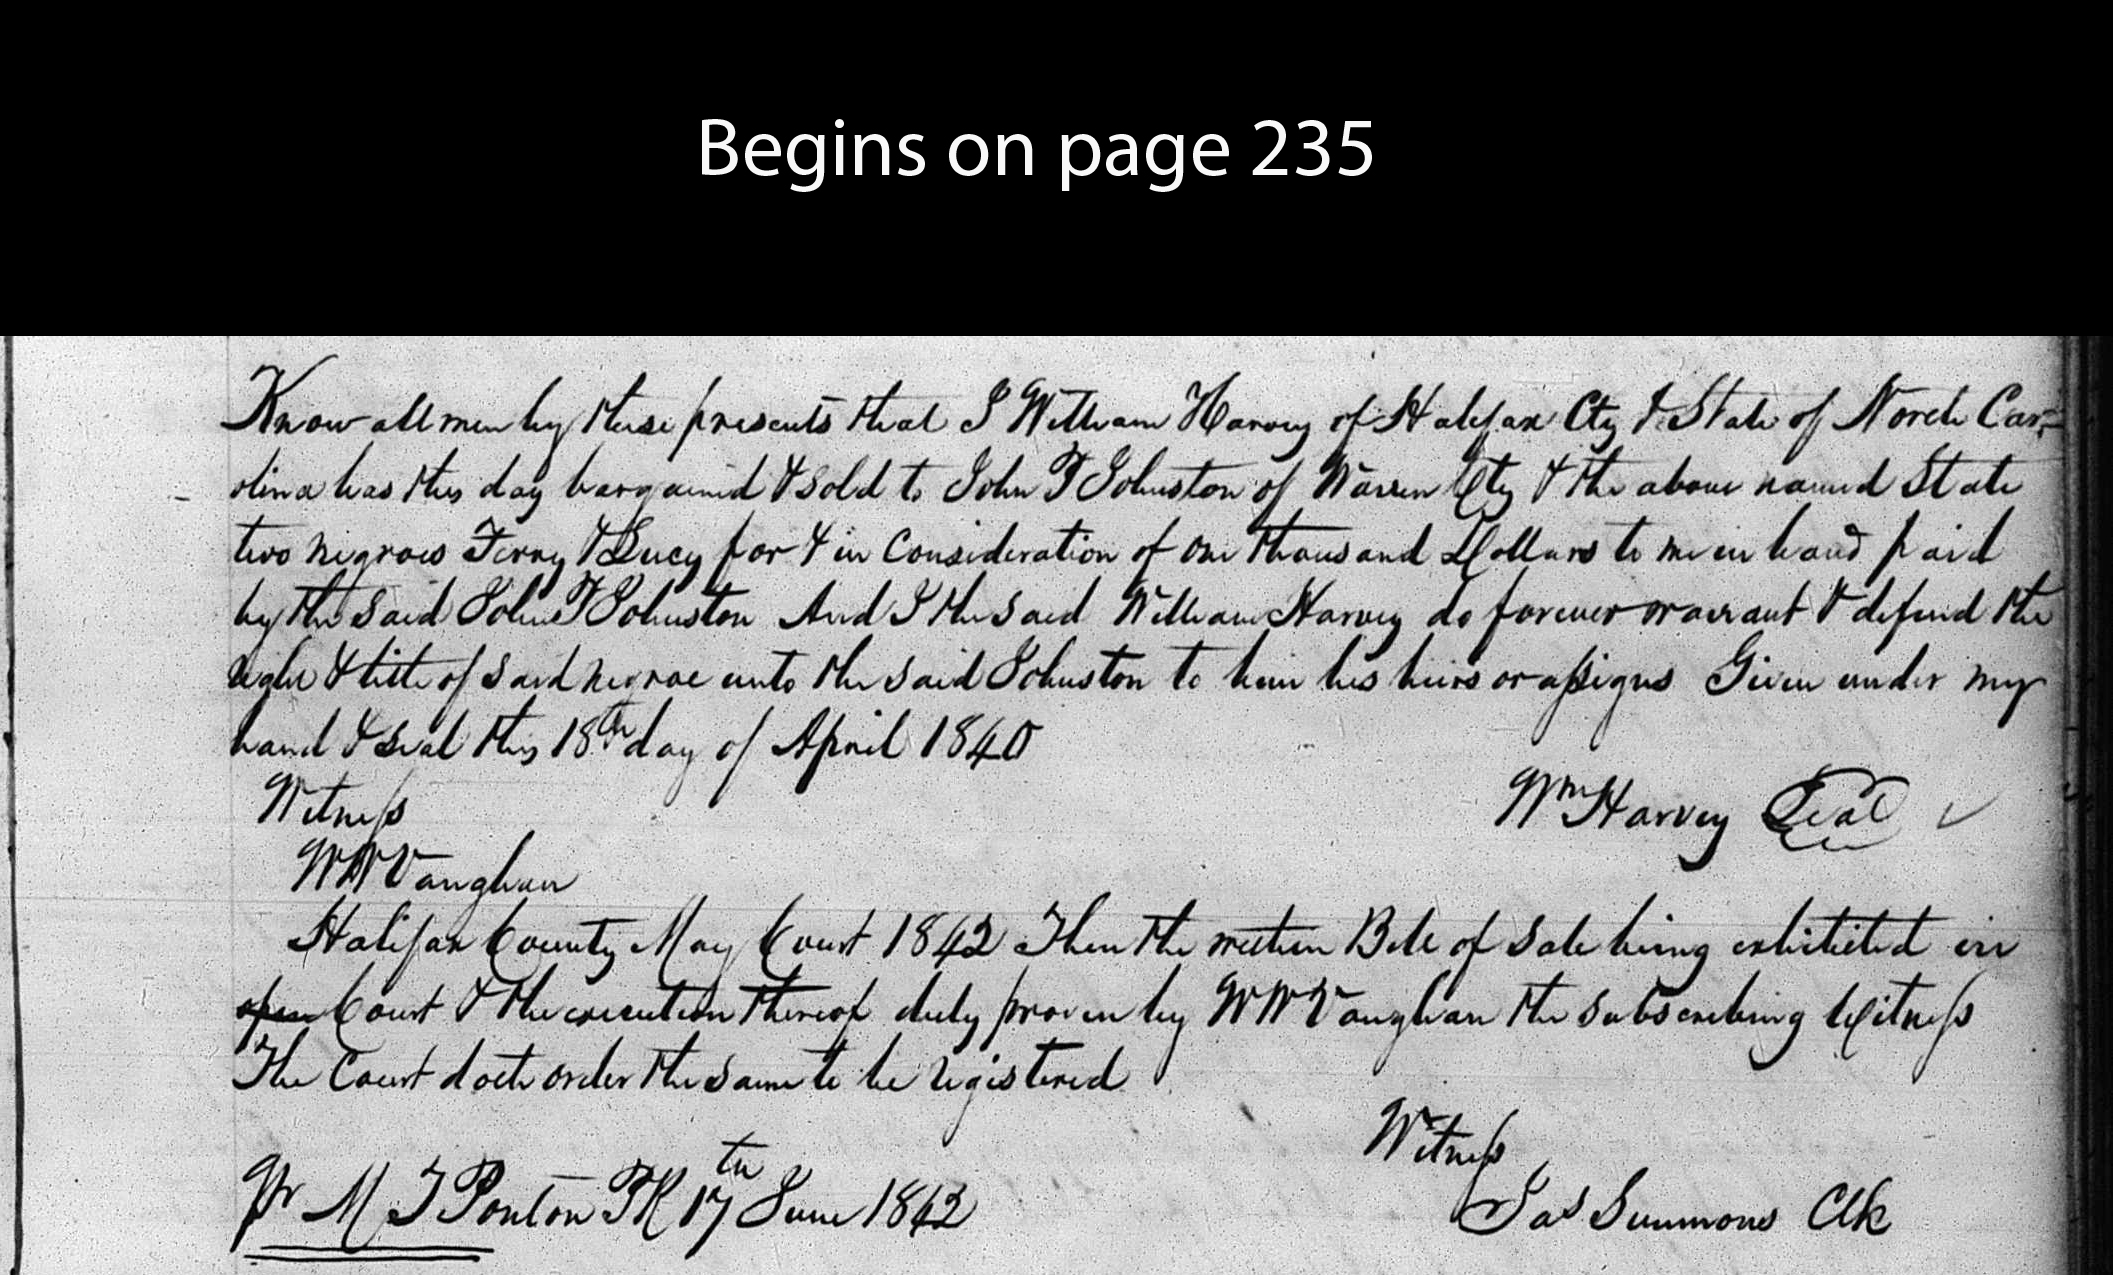 Begins on page 235
Know all men by these presents that I William Harvey of Halifax Cty & State of North Car-
olina has this day bargained & sold to John T Johnston of Warren Cty & the above named State
two negroes Ferry & Lucy for & in Consideration of one thousand Dollars to me in hand paid
by the said John T Johnston And I the said William Harvey do forever warrant & defend the
right & title of said negroe unto the said Johnston to him his heirs or assigns Given under my
hand & seal this 18th day of April 1840
Witness
Wm Harvey Seal
W W Vaughan
Halifax County May Court 1842 Then the written Bill of Sale being exhibited in
open Court & the execution thereof duly proven by W W Vaughan the subscribing Witness
The Court doth order the same to be registered
Witness
Pr M T Ponton PR 17th June 1842
Jas Simmons Clk